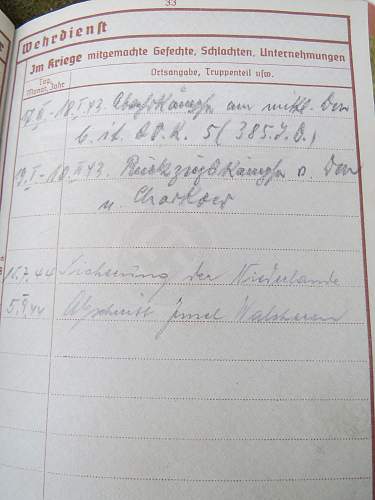 33
Wehrdienst
Im Kriege mitgemachte Gefechte, Schlachten, Unternehmungen
Tag, Monat, Jahr
Ortsangabe, Truppenteil usw.
18.I.43. Abwehrkämpfe am mittl. Don
b. it. A.O.K. 5 (385.I.D.)
19.I-18.II.43. Rückzugskämpfe a. Don
u. Charkow
15.7.44 Sicherung der Niederlande
5.9.44 Abschnitt Insel Walcheren